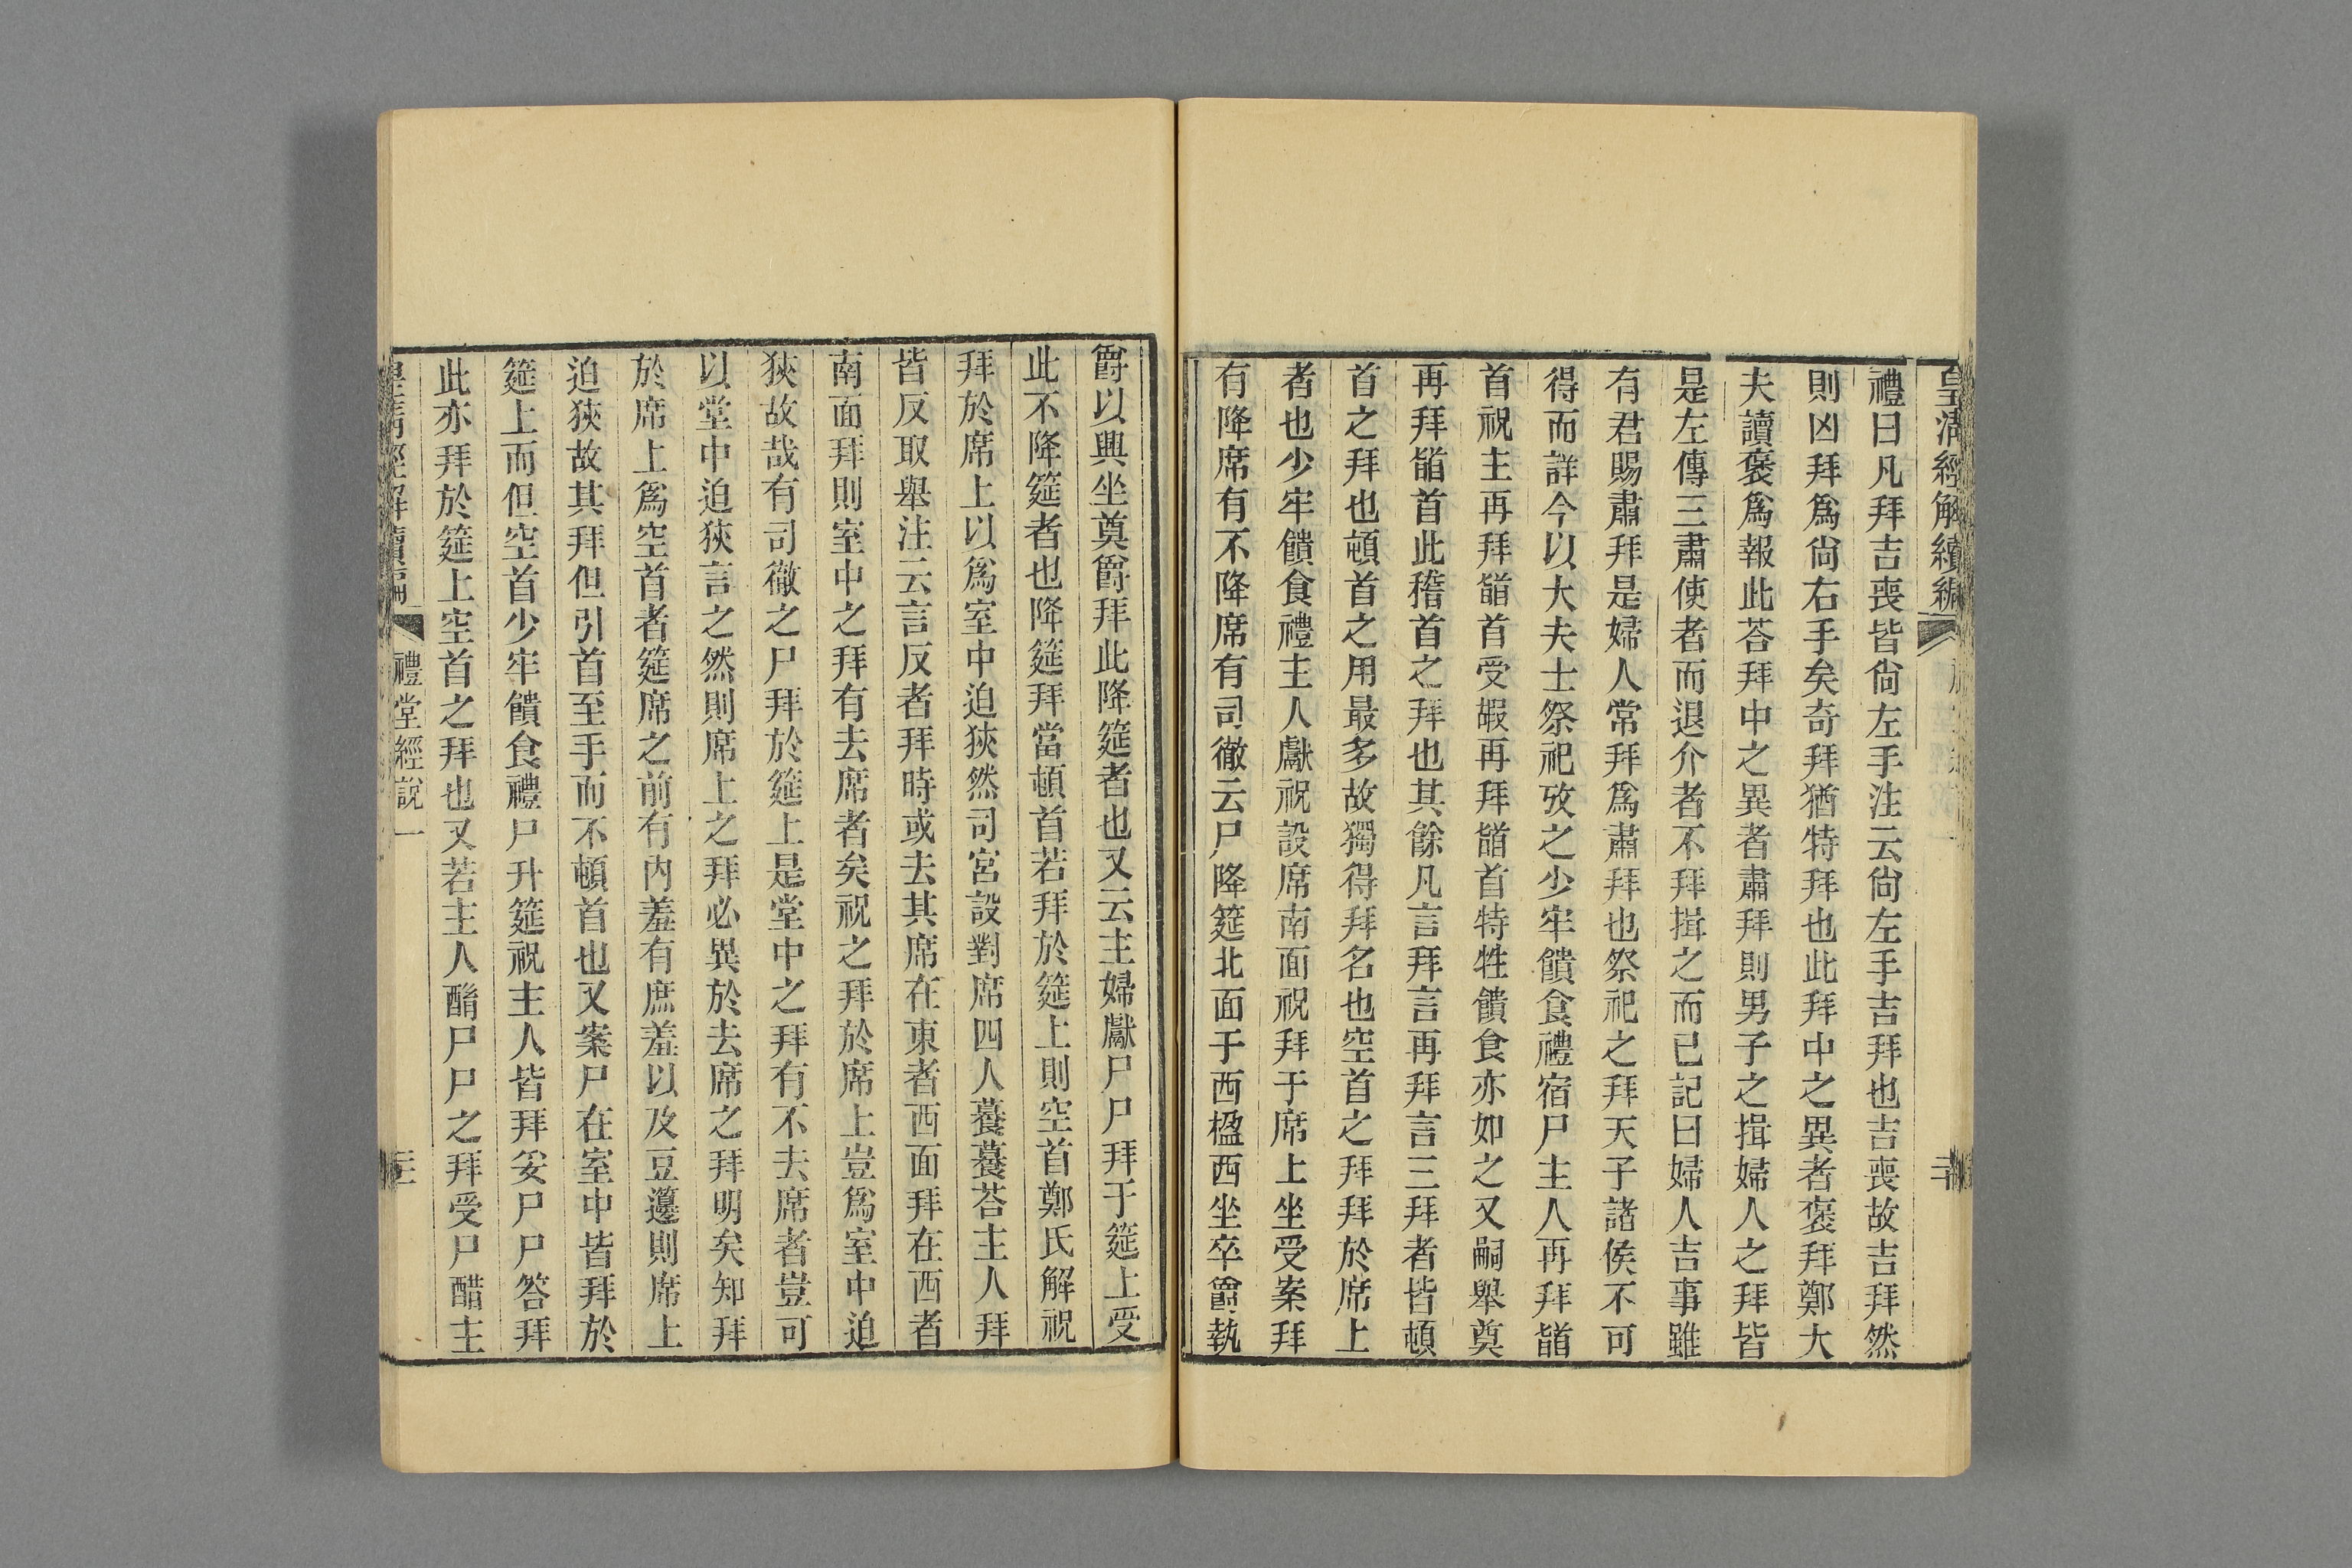 皇清經解續編
禮曰凡拜吉喪皆尙左手注云尙左手吉拜也吉喪故吉拜然
則凶拜爲尙右手矣奇拜猶特拜也此拜中之異者褒拜鄭大
夫讀褒爲報此荅拜中之異者肅拜則男子之揖婦人之拜皆
是左傳三肅使者而退介者不拜揖之而已記曰婦人吉事雖
有君賜肅拜是婦人常拜爲肅拜也祭祀之拜天子諸侯不可
得而詳今以大夫士祭祀攷之少牢饋食禮宿尸主人再拜䭫
首祝主再拜䭫首受嘏再拜䭫首特牲饋食亦如之又嗣舉奠
再拜䭫首此稽首之拜也其餘凡言拜言再拜言三拜者皆頓
首之拜也頓首之用最多故獨得拜名也空首之拜拜於席上
者也少牢饋食禮主人獻祝設席南面祝拜于席上坐受案拜
有降席有不降席有司徹云尸降筵北面于西楹西坐卒爵執
爵以興坐奠爵拜此降筵者也又云主婦獻尸尸拜于筵上受
此不降筵者也降筵拜當頓首若拜於筵上則空首鄭氏解祝
拜於席上以爲室中迫狹然司宮設對席四人䬸䬸荅主人拜
皆反取舉注云言反者拜時或去其席在東者西面拜在西者
南面拜則室中之拜有去席者矣祝之拜於席上豈爲室中迫
狹故哉有司徹之尸拜於筵上是堂中之拜有不去席者豈可
以堂中迫狹言之然則席上之拜必異於去席之拜明矣知拜
於席上爲空首者筵席之前有內羞有庶羞以及豆籩則席上
迫狹故其拜但引首至手而不頓首也又案尸在室中皆拜於
筵上而但空首少牢饋食禮尸升筵祝主人皆拜妥尸尸答拜
此亦拜於筵上空首之拜也又若主人酳尸尸之拜受尸醋主
皇清經解續編 禮堂經說一